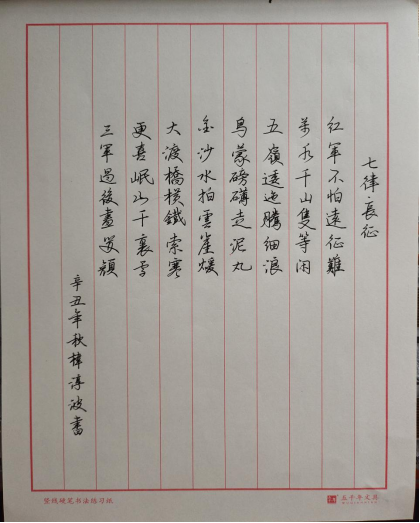 七律·長征
红軍不怕遠征難
萬水千山隻等闲
五嶺逶迤騰细浪
烏蒙磅礴走泥丸
金沙水拍雲崖煖
大渡橋横鐵索寒
更喜岷山千裏雪
三軍過後盡開顔
辛丑年秋韓淳波書
竖线硬笔书法练习纸